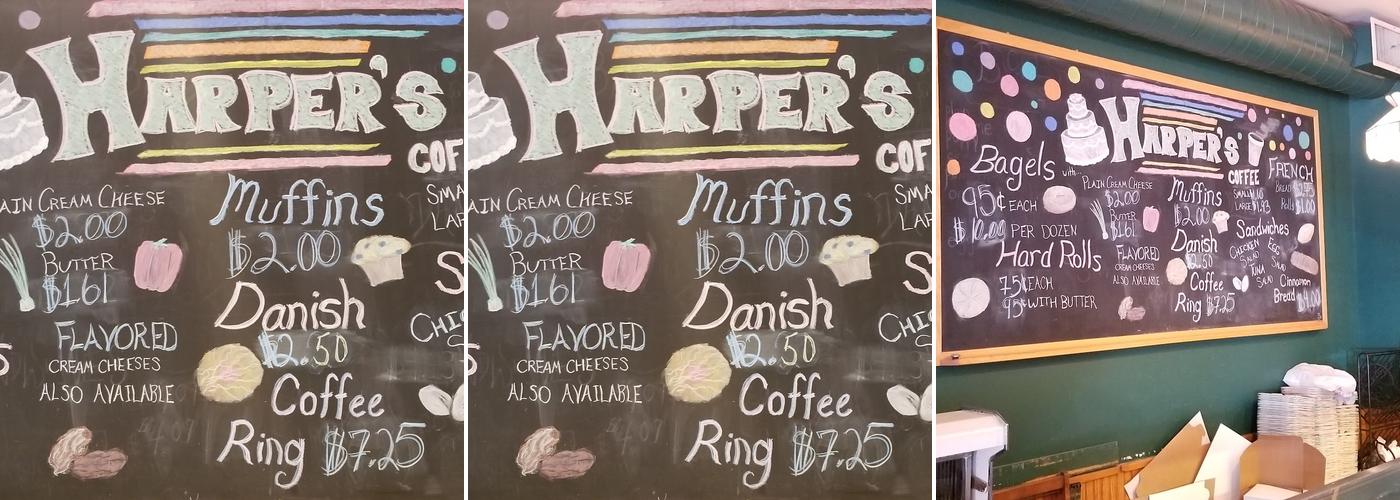 HARPER'S
COF
AIN CREAM CHEESE
$2.00
BUTTER
$1.61
FLAVORED
CREAM CHEESES
ALSO AVAILABLE
Muffins
$2.00
Danish
$2.50
Coffee
Ring $7.25
SMA
LAR
S
CHIC
HARPER'S
COF
AIN CREAM CHEESE
$2.00
BUTTER
$1.61
FLAVORED
CREAM CHEESES
ALSO AVAILABLE
Muffins
$2.00
Danish
$2.50
Coffee
Ring $7.25
SMA
LAR
S
CHIC
HARPER'S
COFFEE
Bagels with...
95¢ EACH
$10.00 PER DOZEN
Hard Rolls
75¢ EACH
95¢ WITH BUTTER
PLAIN CREAM CHEESE
$2.00
BUTTER
$1.61
FLAVORED
CREAM CHEESES
ALSO AVAILABLE
Muffins
$2.00
Danish
$2.50
Coffee
Ring $7.25
SMALL
LARGE
Sandwiches
CHICKEN SALAD
EGG SALAD
TUNA SALAD
FRENCH
BREAD
Rolls $1.00
Cinnamon
Bread $4.00